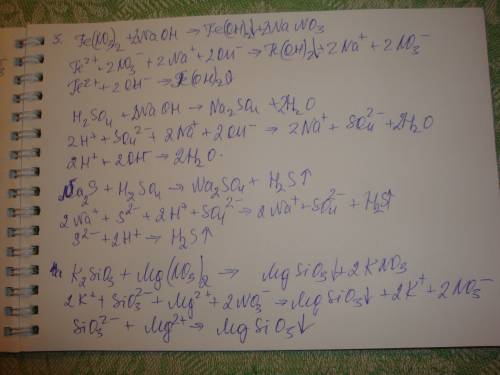 3. Fe(NO3)2 + 2NaOH → Fe(OH)2↓ + 2NaNO3
Fe²⁺ + 2NO3⁻ + 2Na⁺ + 2OH⁻ → Fe(OH)2↓ + 2Na⁺ + 2NO3⁻
Fe²⁺ + 2OH⁻ → Fe(OH)2
H2SO4 + 2NaOH → Na2SO4 + 2H2O
2H⁺ + SO4²⁻ + 2Na⁺ + 2OH⁻ → 2Na⁺ + SO4²⁻ + 2H2O
2H⁺ + 2OH⁻ → 2H2O.
Na2S + H2SO4 → Na2SO4 + H2S↑
2Na⁺ + S²⁻ + 2H⁺ + SO4²⁻ → 2Na⁺ + SO4²⁻ + H2S↑
S²⁻ + 2H⁺ → H2S↑
4. K2SiO3 + Mg(NO3)2 → MgSiO3↓ + 2KNO3
2K⁺ + SiO3²⁻ + Mg²⁺ + 2NO3⁻ → MgSiO3↓ + 2K⁺ + 2NO3⁻
SiO3²⁻ + Mg²⁺ → MgSiO3↓